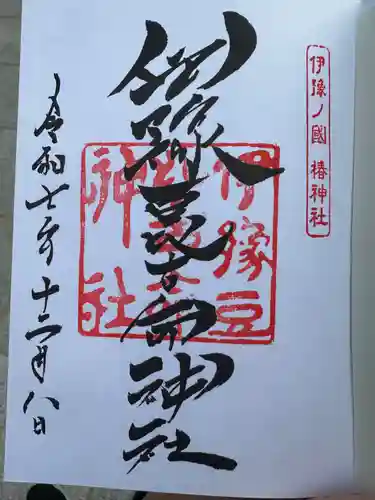 伊豫ノ國 椿神社
伊豫豆比古命神社
伊豫豆
比古命
神社
令和七年十二月八日